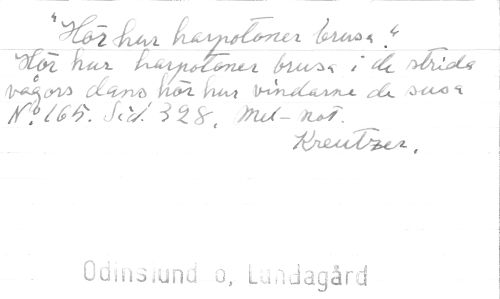 "Hör hur harpotoner brusa."
Hör hur harpotoner brusa i de strida
vågors dans hör hur vindarne de susa
No. 165. Sid. 328. Mel-not.
Kreutzer.
Odinslund o, Lundagård